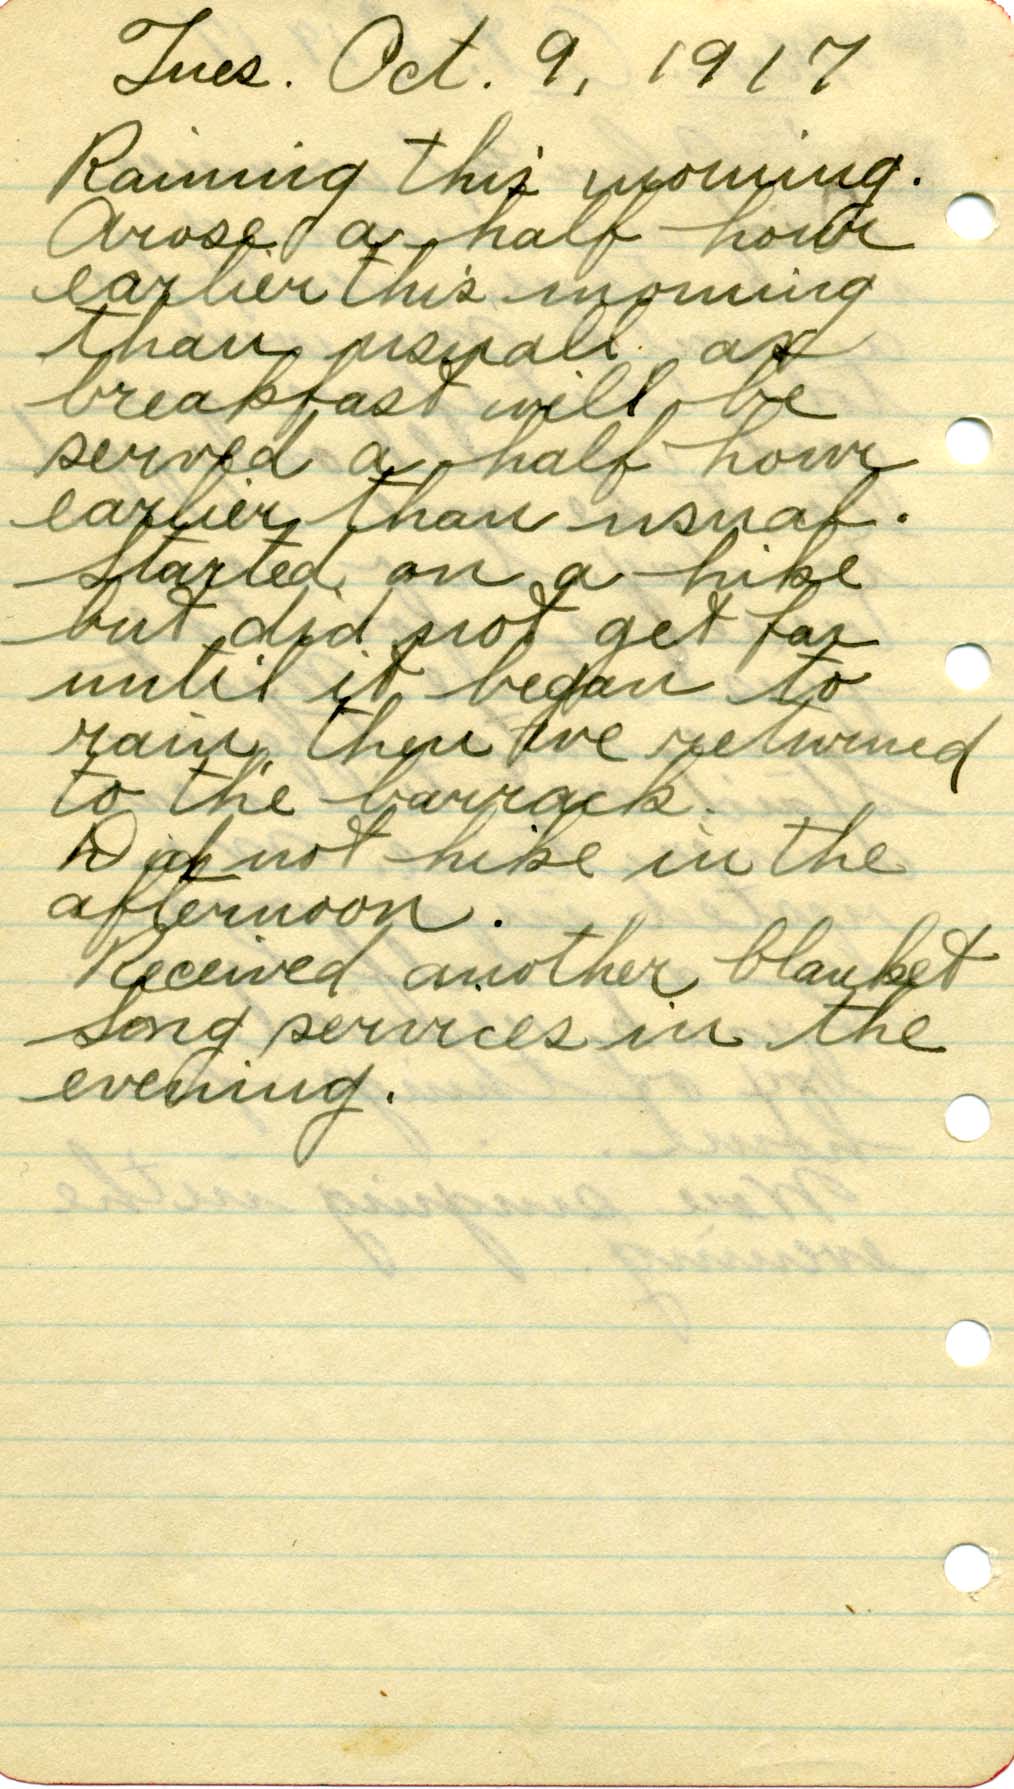 Tues. Oct. 9, 1917
Raining this morning.
Arose a half hour
earlier this morning
than usuall as
breakfast will be
served a half hour
earlier than usual.
Started on a hike
but did not get far
until it began to
rain, then we returned
to the barrack.
Did not hike in the
afternoon.
Received another blanket
Song services in the
evening.